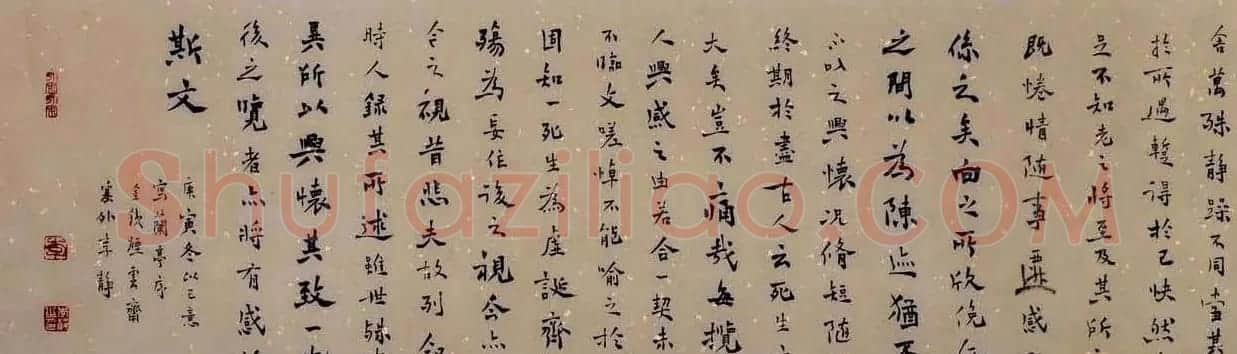 舍萬殊静躁不同當其
於所遇暫得於己快然
足不知老之將至及其所
既惓情随事遷感
係之矣向之所欣俛
之間以為陳迹猶不
以之興懷况脩短随
終期於盡古人云死生
大矣豈不痛哉每攬
人興感之由若合一契未
不臨文嗟悼不能喻之於
固知一死生為虚誕齊
殤為妄作後之視今亦
今之視昔悲夫故列叙
時人録其所述雖世殊
異所以興懷其致一也
後之覽者亦將有感於
斯文
庚寅冬以己意
寫蘭亭序
雲齋
李静
Shufaziliao.COM